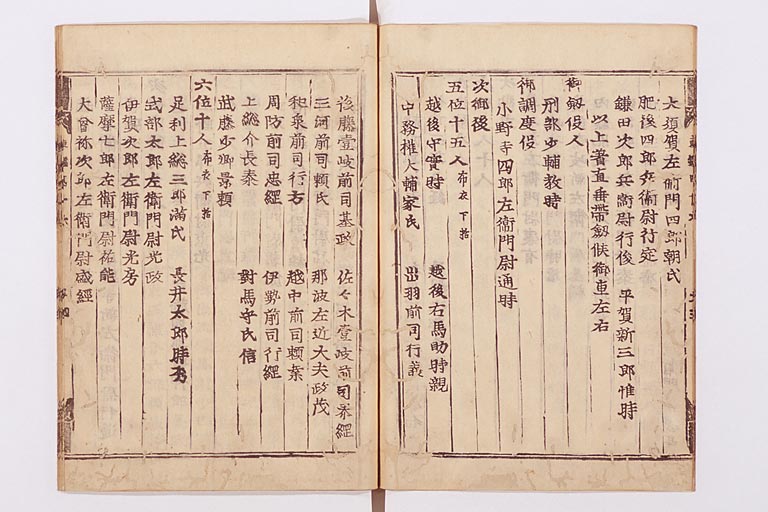 大須賀左衛門四郎朝氏
肥後四郎兵衛尉行定
鎌田次郎兵衛尉行俊 平賀新三郎惟時
以上著直垂帯劔候御車左右
御劔役人
刑部少輔教時
御調度役
小野寺四郎左衛門尉通時
次御後
五位十五人布衣下括
越後守實時 越後右馬助時親
中務権大輔家氏 出羽前司行義
後藤壹岐前司基政 佐々木壹岐前司泰經
三河前司頼氏 那波左近大夫政茂
和泉前司行方 越中前司頼業
周防前司忠經 伊勢前司行經
上総介長泰 對馬守氏信
武藤少卿景頼
六位十人布衣下括
足利上総三郎満氏 長井太郎時秀
式部太郎左衛門尉光政
伊賀次郎左衛門尉光房
薩摩七郎左衛門尉祐能
大曾祢次郎左衛門尉盛經